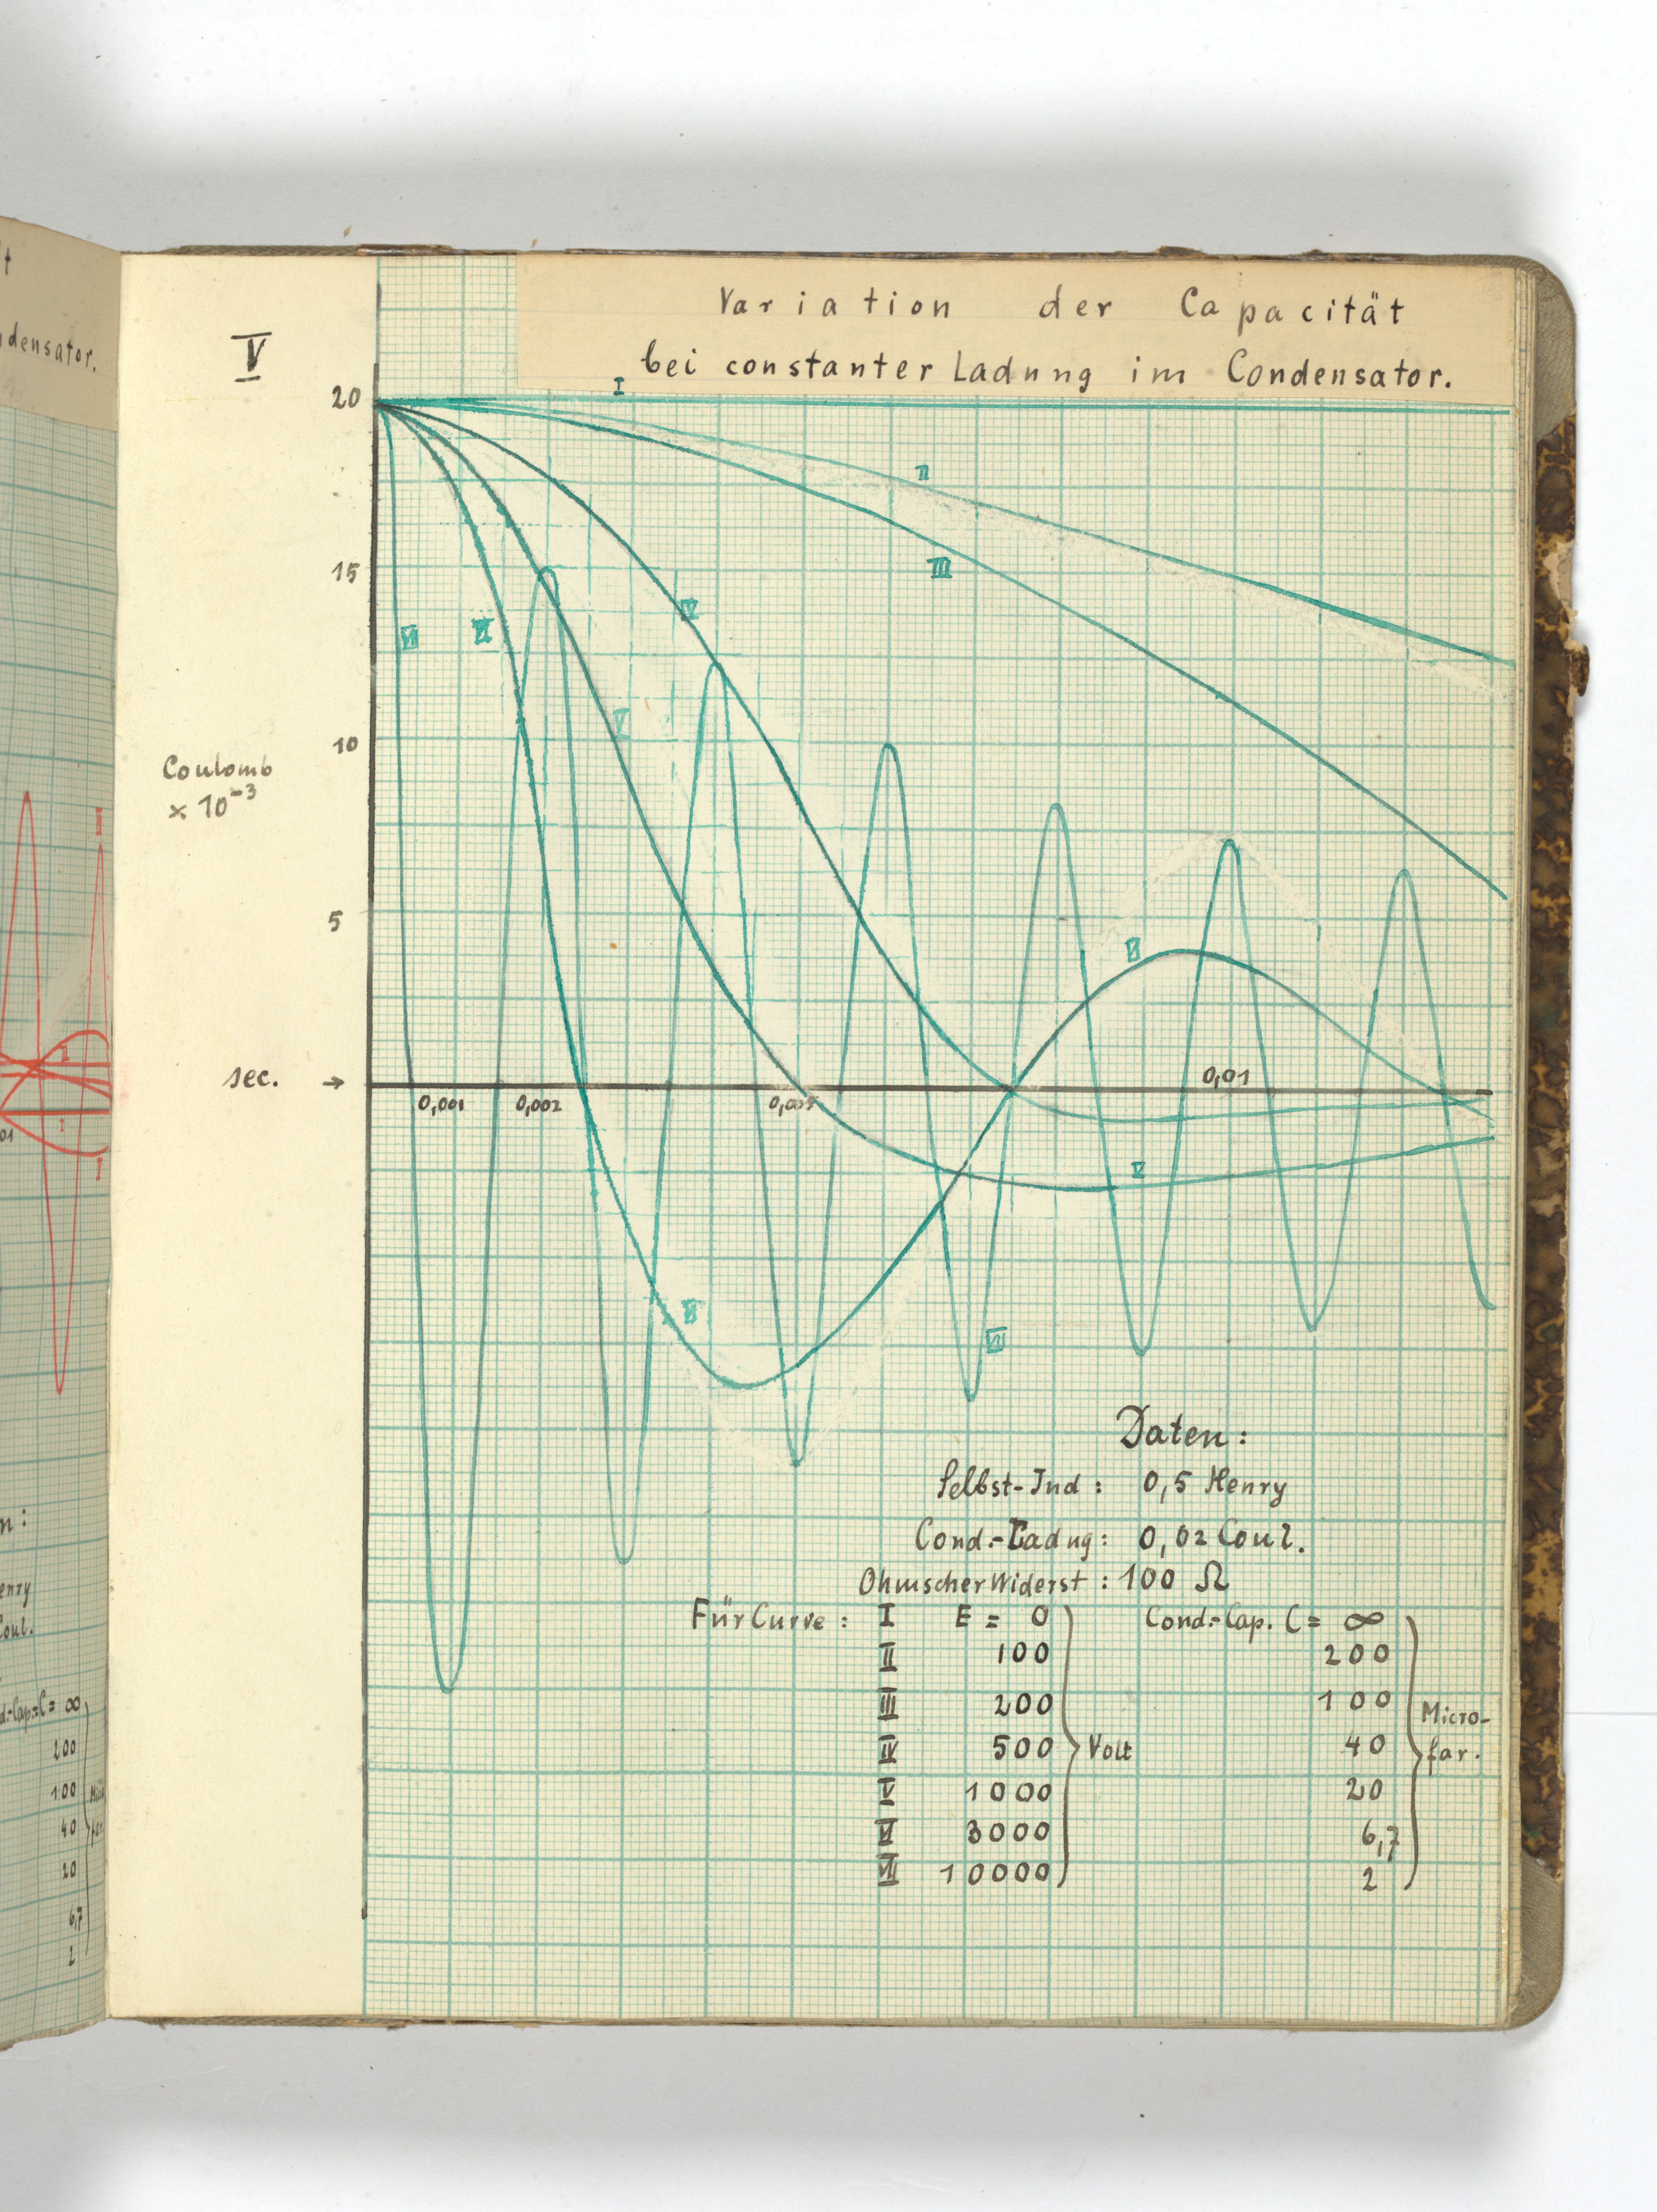 t
ndensator.
V
Variation der Capacität
bei constanter Ladung im Condensator.
20
I
II
15
III
IV
VII
VI
V
10
Coulomb
× 10⁻³
5
VI
sec. →
0,001
0,002
0,005
0,01
V
VI
VII
Daten:
Selbst-Ind: 0,5 Henry
Cond.-Ladng: 0,02 Coul.
Ohmscher Widerst: 100 Ω
Für Curve: I E = 0 Cond.-Cap. C = ∞
II 100 200
III 200 100
IV 500 Volt 40
V 1000 20
VI 3000 6,7
VII 10000 2
Micro-
far.
01
I
n:
enry
Coul.
d.-Cap.C= ∞
200
100
40
20
6,7
2